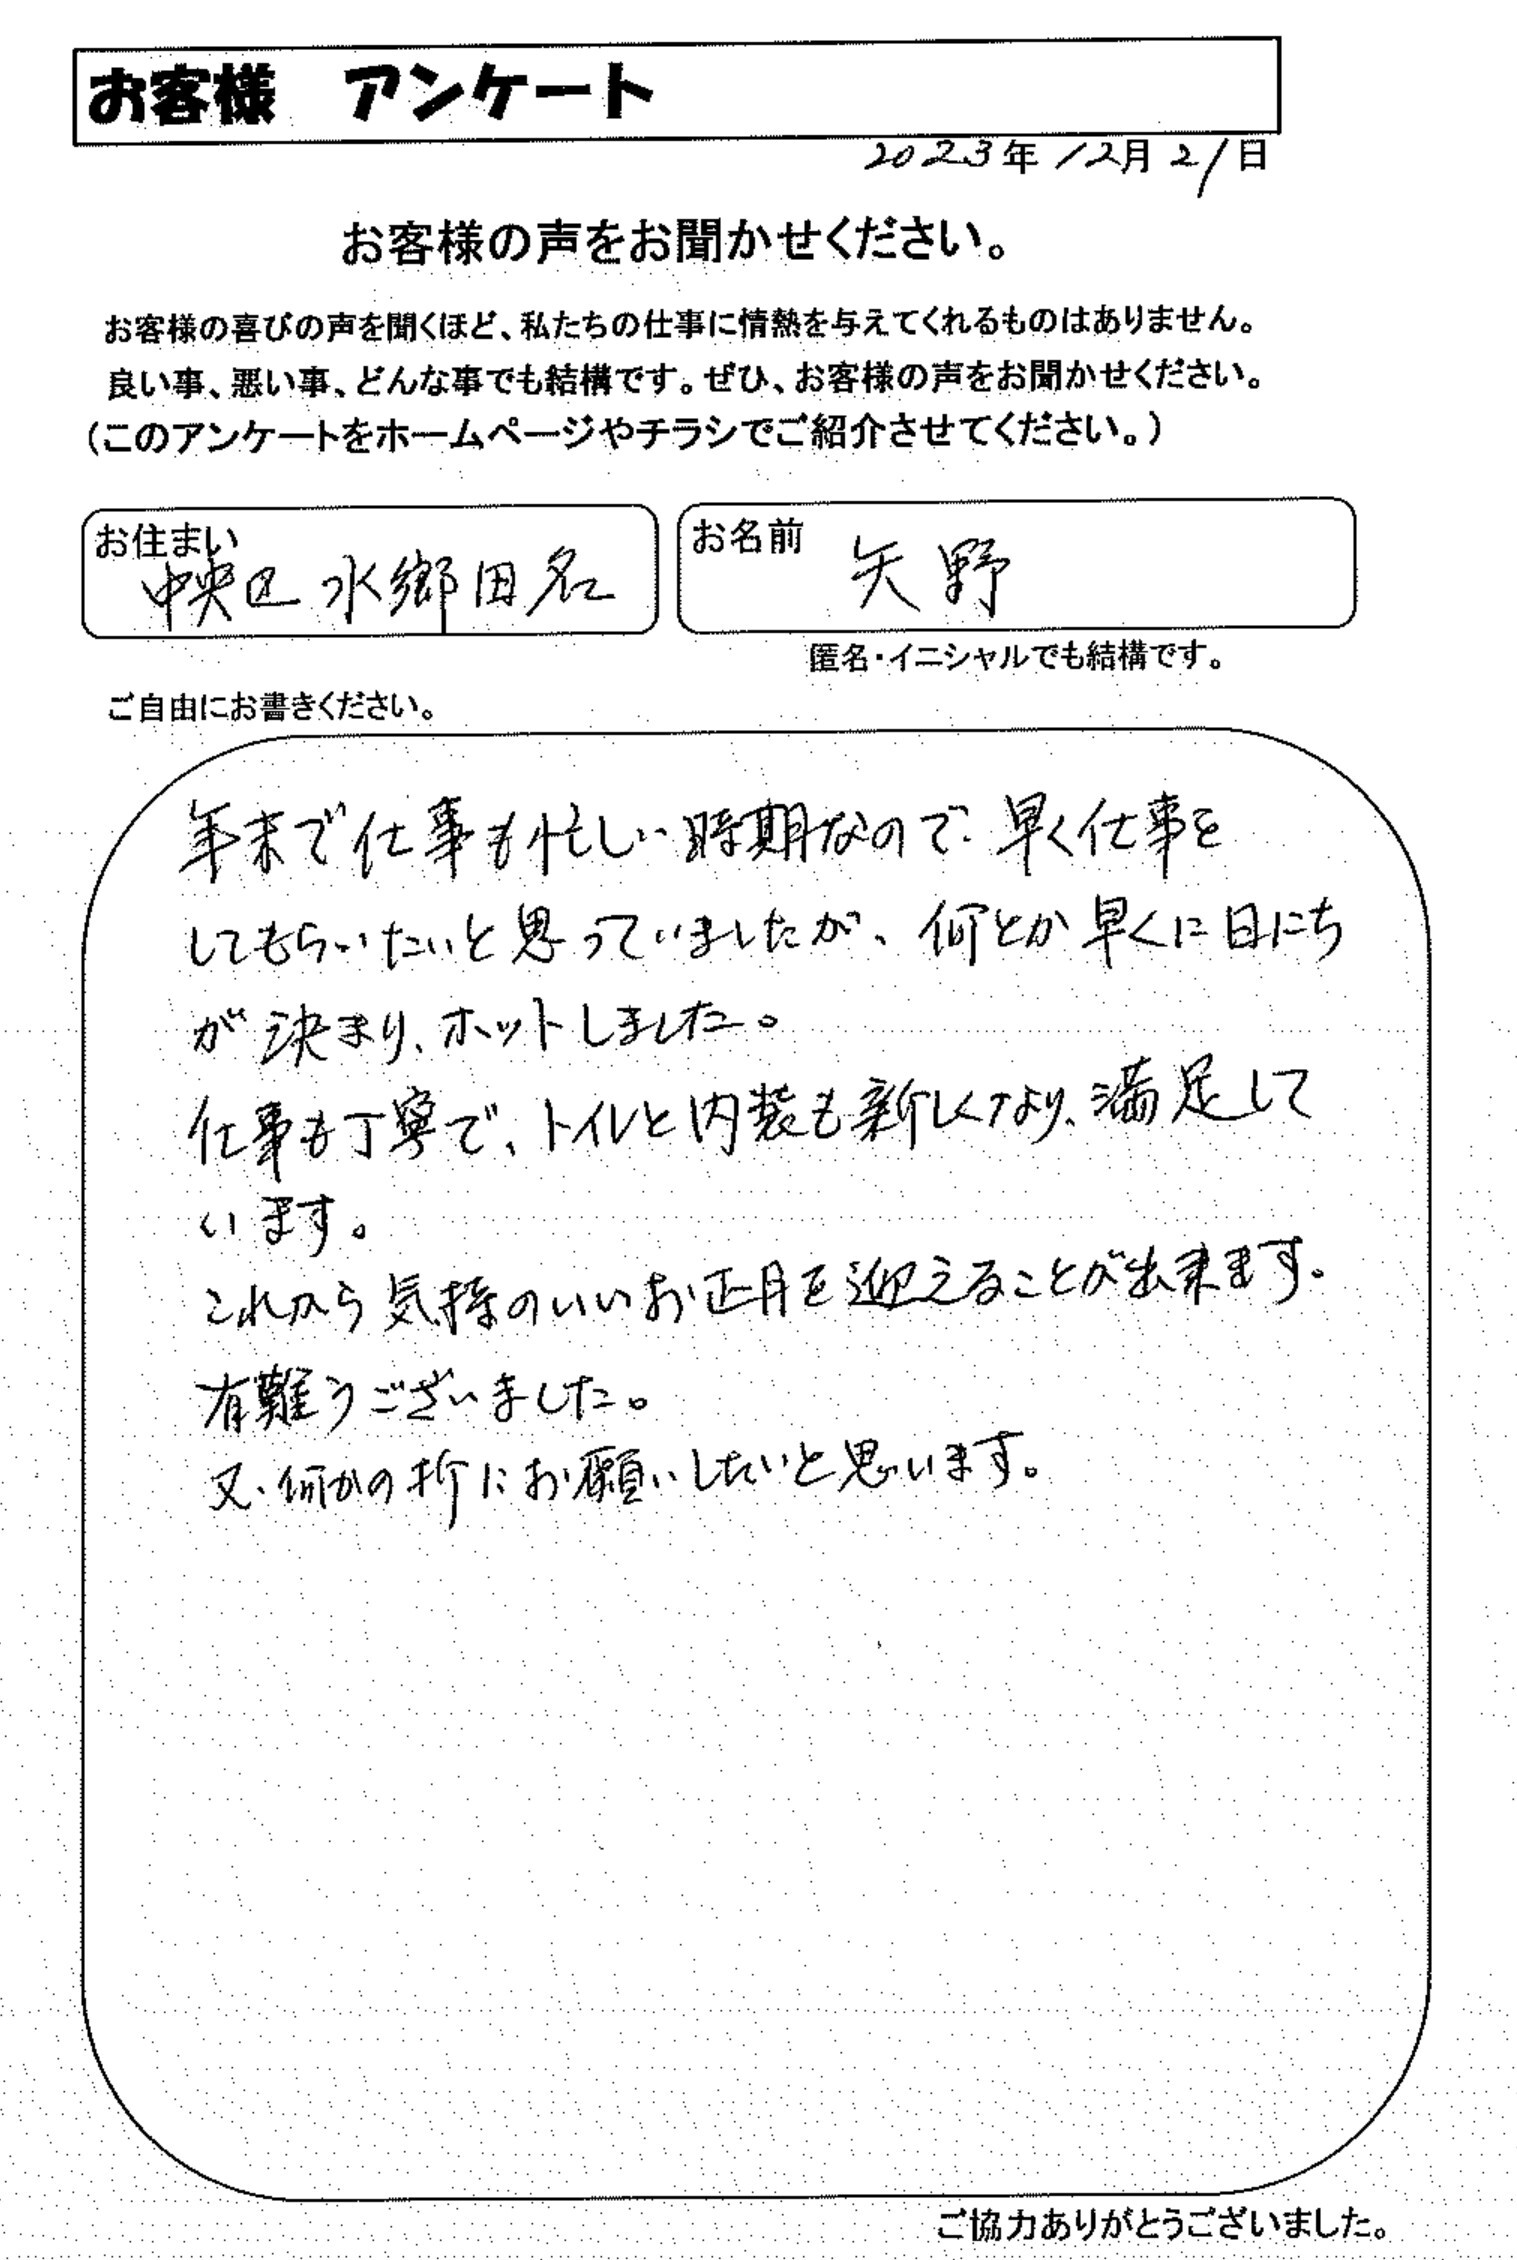 お客様 アンケート
2023年12月21日
お客様の声をお聞かせください。
お客様の喜びの声を聞くほど、私たちの仕事に情熱を与えてくれるものはありません。
良い事、悪い事、どんな事でも結構です。ぜひ、お客様の声をお聞かせください。
(このアンケートをホームページやチラシでご紹介させてください。)
お住まい
中央区水郷田名
お名前
矢野
匿名・イニシャルでも結構です。
ご自由にお書きください。
年末で仕事も忙しい時期なので、早く仕事を
してもらいたいと思っていましたが、何とか早くに日にち
が決まり、ホットしました。
仕事も丁寧で、トイレと内装も新しくなり、満足して
います。
これから気持のいいお正月を迎えることが出来ます。
有難うございました。
又、何かの折にお願いしたいと思います。
ご協力ありがとうございました。